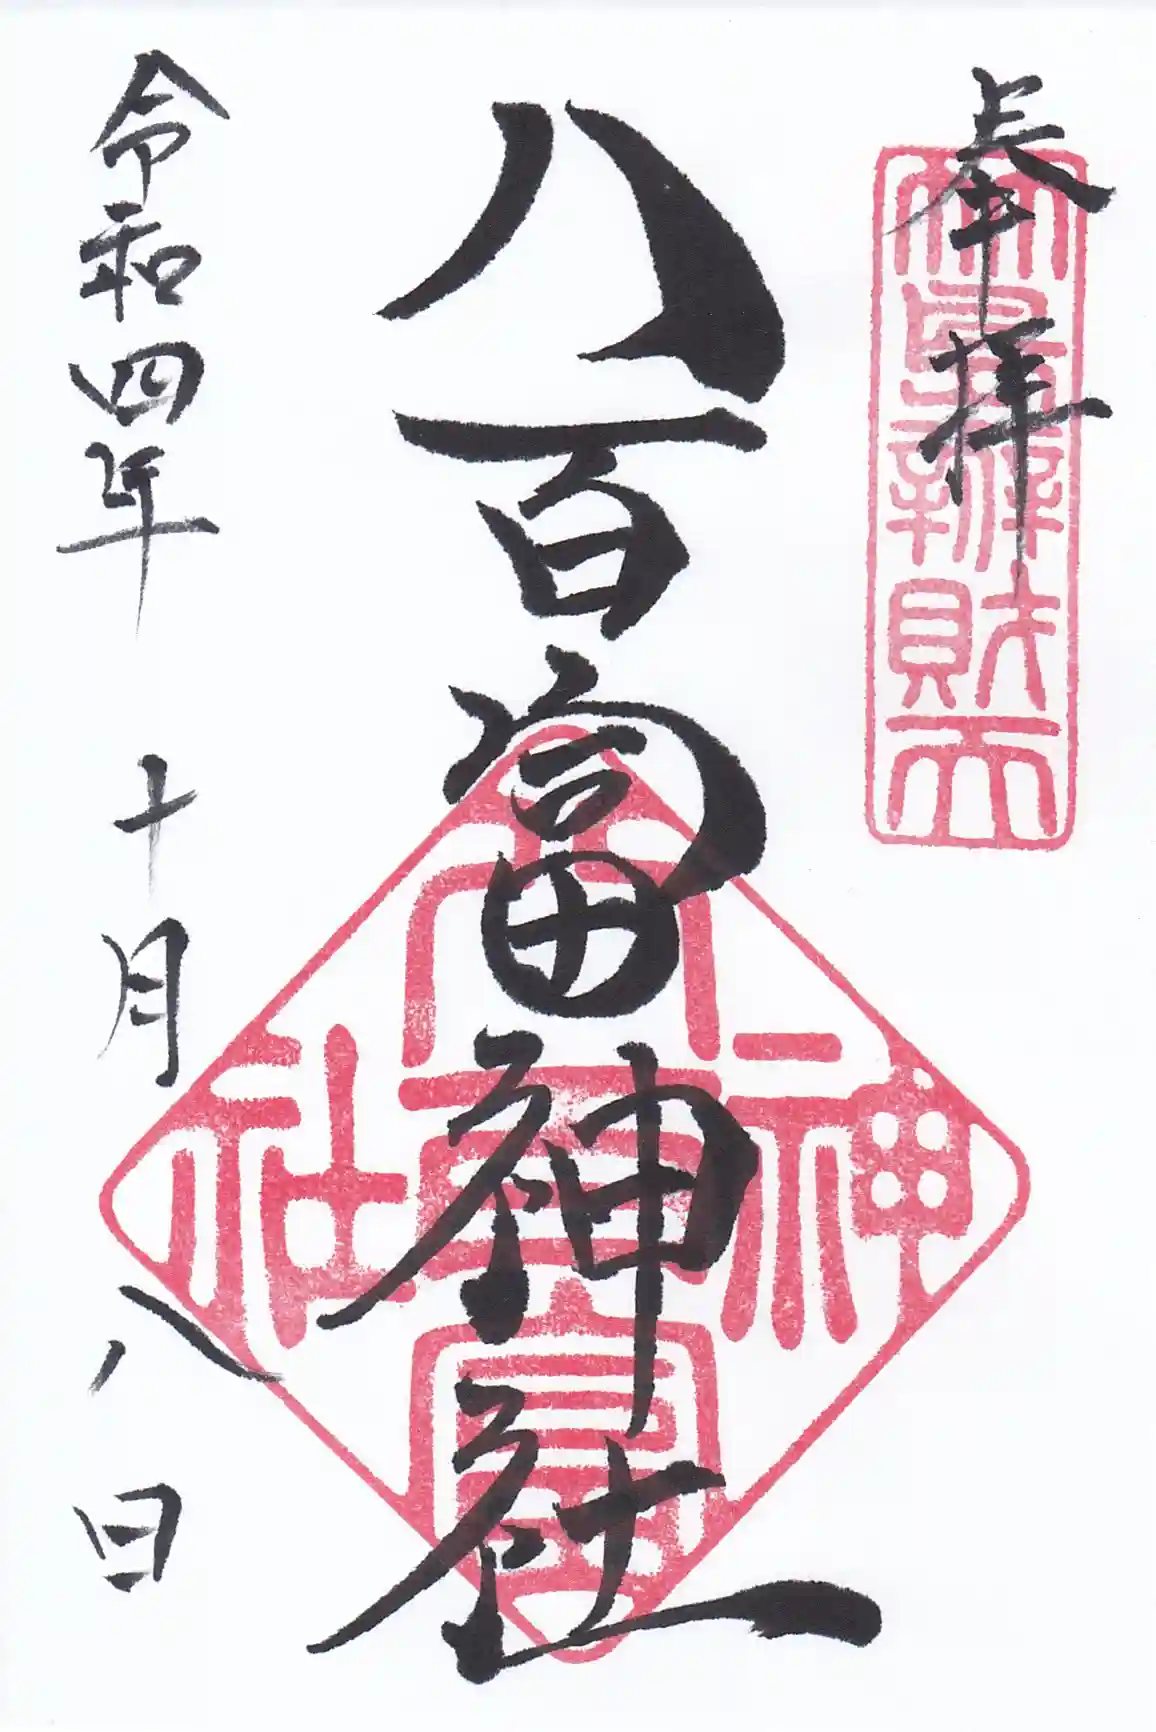 奉拝
竹島辨財天
八百富神社
八百富神社
令和四年 十月 八日